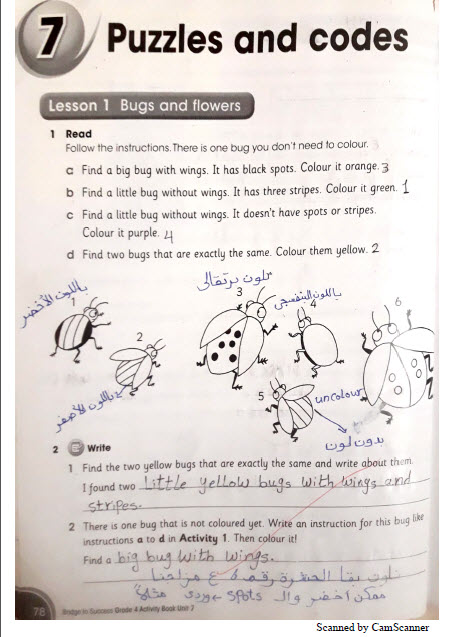 7 Puzzles and codes
Lesson 1 Bugs and flowers
1 Read
Follow the instructions. There is one bug you don't need to colour.
a Find a big bug with wings. It has black spots. Colour it orange. 3
b Find a little bug without wings. It has three stripes. Colour it green. 1
c Find a little bug without wings. It doesn't have spots or stripes.
Colour it purple. 4
d Find two bugs that are exactly the same. Colour them yellow. 2
باللون الأخضر
تلون برتقالى
باللون البنفسجي
1
2
3
4
5
6
باللون الأصفر
uncolour
بدون لون
2 Write
1 Find the two yellow bugs that are exactly the same and write about them.
I found two Little yellow bugs with wings and
stripes.
2 There is one bug that is not coloured yet. Write an instruction for this bug like
instructions a to d in Activity 1. Then colour it!
Find a big bug with wings.
نلون بقا الحشرة رقم
ممكن اخضر وال spots
78
Bridge to Success Grade 4 Activity Book Unit 7
Scanned by CamScanner